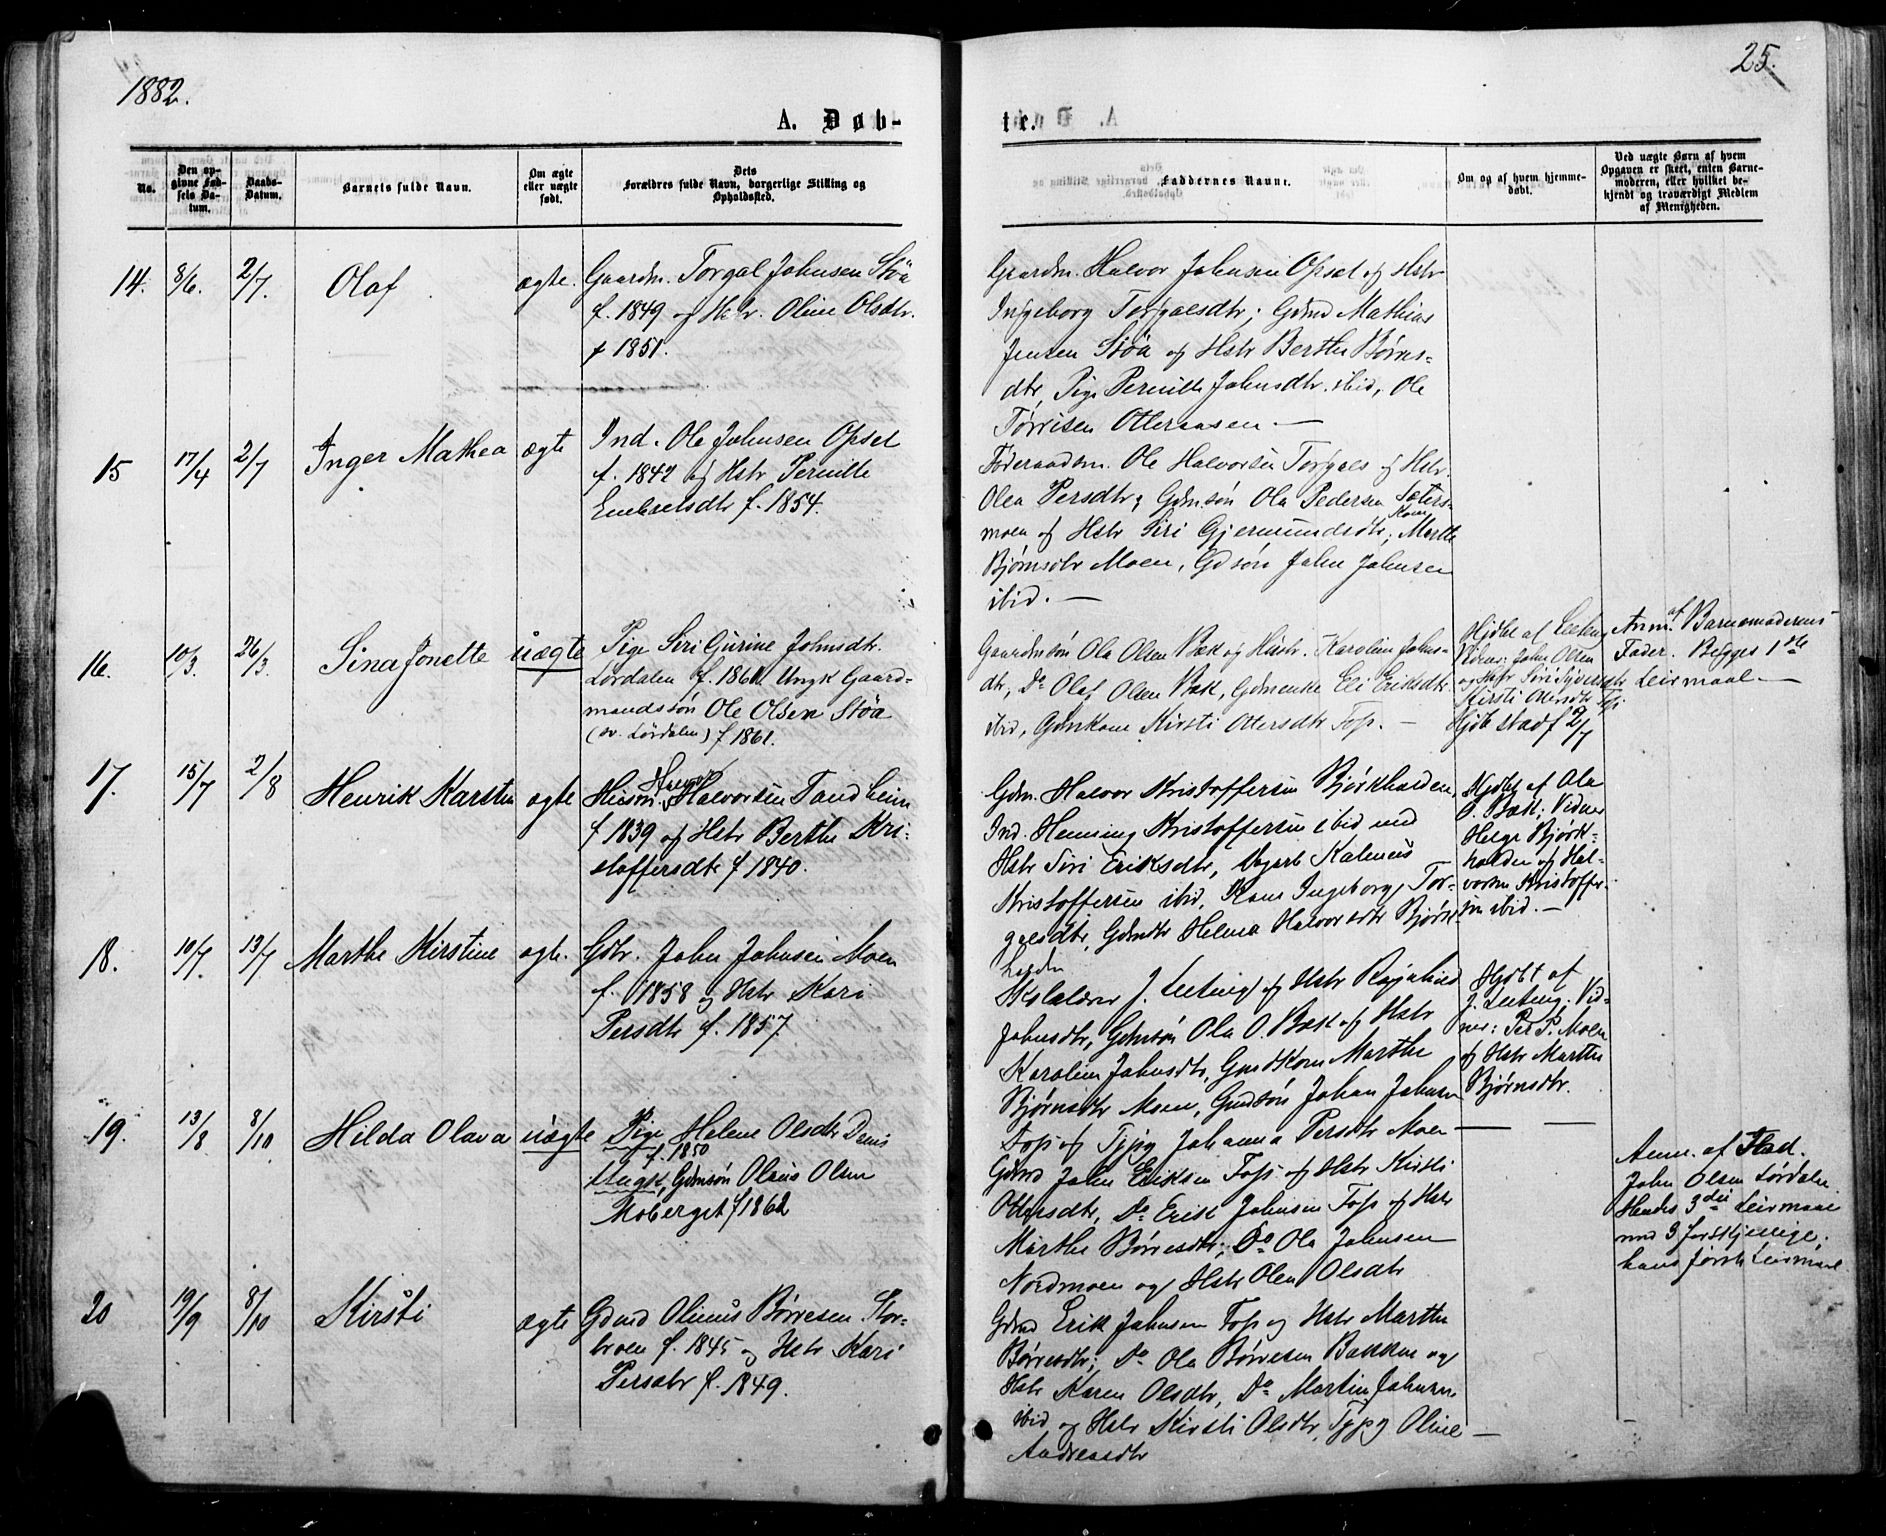 1882.
25.
A. Døb-
te.
No.
Den op-
givne Fød-
sels Da-
tum.
Daabs-
Datum.
Barnets fulde Navn.
Om ægte
eller uægte
født.
Dets
Forældres fulde Navn, borgerlige Stilling og
Opholdssted.
Faddernes Navne.
Om og af hvem hjemme-
døbt.
Ved uægte Børn af hvem
Opgaven er skeet, enten Barne-
moderen, eller hvilket be-
kjendt og troværdigt Medlem
af Menigheden.
14. 8/6. 2/7. Olaf ægte.
Gaardm. Torgal Johnsen Støa
f. 1849 og Hstr. Oline Olsdtr.
f 1851.
Gaardm. Halvor Johnsen Opset og Hstr
Ingeborg Torgalsdtr; Gdmd Mathias
Jensen Støa og Hstr Berthe Børres-
dtr, Pige Pernille Johnsdtr. ibid, Ole
Tørrisen Otteraasen. —
15 17/4 2/7 Inger Mathea ægte
Ind. Ole Johnsen Opset
f. 1842 og Hstr Pernille
Embretsdtr f. 1854.
Føderaadsm. Ole Halvorsen Torgals og Hstr.
Olea Persdtr; Gdmsøn Ola Pedersen Sæters-
moen og Hstr Siri Gjermundsdtr; Kone Marthe
Bjørnsdtr Moen, Gdsøn John Johnsen
ibid. —
16. 10/3. 26/3. Sina Jonette uægte
Pige Siri Gurine Johnsdtr.
Lørdalen f. 1861. Ungk Gaard-
mandssøn Ole Olsen Støa
(ov. Lørdalen) f 1861.
Gaardmsøn Ola Olsen Bæk og Hustr. Karoline Johns-
dtr, Do Olaf Olsen Bæk, Gdmenke Eli Eriksdtr
ibid, Gdmkone Kirsti Ottersdtr Fos. —
Hjdbt af Leeting
Vidner: John Olsen
og Hstr Siri
Kirsti Ottersdtr Fos
Hjdb stadf 2/7
Anm. af Barnemoderens
Fader. Begges 1ste
Leiermaal. —
17. 15/7 2/8 Henrik Karsten ægte
Halvorsen Tandheim
f 1839 og Hstr Berthe Kri-
stoffersdtr f 1840.
Gdm. Halvor Kristoffersen Bjørkholden,
Ind. Henning Kristoffersen ibid med
Hstr Siri Eriksdtr, Ungkarl Kalenius
Kristoffersen ibid, Kone Ingeborg Tor-
galsdtr, Gdmdtr Helena Halvorsdtr Bjørk-
holden
Hjdbt af Ola
O. Bæk; Vidner
Helge Bjørk-
holden og Hal-
vorsen Kristoffer-
sen ibid. —
18. 10/7. 13/7 Marthe Kirstine ægte.
Gdbr. John Johnsen Moen
f. 1858 og Hstr Kari
Persdtr f. 1857
Skolelærer J. Leeting og Hstr Ragnhild
Johnsdtr, Gdmsøn Ola O. Bæk og Hstr
Karoline Johnsdtr, Gmdkone Marthe
Bjørnsdtr Moen, Gmdsøn Johan Johnsen
Fos og Tjpg Johanna Persdtr Moen —
Hjdbt af
J. Leeting. Vid-
ner: Per P. Moen
og Hstr Marthe
Bjørnsdtr.
19. 13/8 8/10 Hilda Olava uægte
Pige Helene Olsdtr
f. 1850
Ungk, Gdmsøn Olaus Olsen
Moberget f 1862
Gdmd John Eriksen Fos og Hstr Kirsti
Ottersdtr, Do Erik Johnsen Fos og Hstr
Marthe Børresdtr; Do Ola Johnsen
Nordmoen og Hstr Olea Olsdtr
Anm. af
John Olsen Lørdalen
Hendes 3die Leiermaal
med 3 forskjellige.
hans første Leiermaal
20 19/9 8/10 Kirsti ægte
Gdmd Olinus Børresen Stor-
broen f. 1845 og Hstr Kari
Persdtr f. 1849.
Gdmd Erik Johnsen Fos og Hstr Marthe
Børresdtr; Do Ola Børresen Bakken og
Hstr Karen Olsdtr, Do Martin Johnsen
ibid og Hstr Kirsti Olsdtr, Tjpg Oline —
Andreasdtr